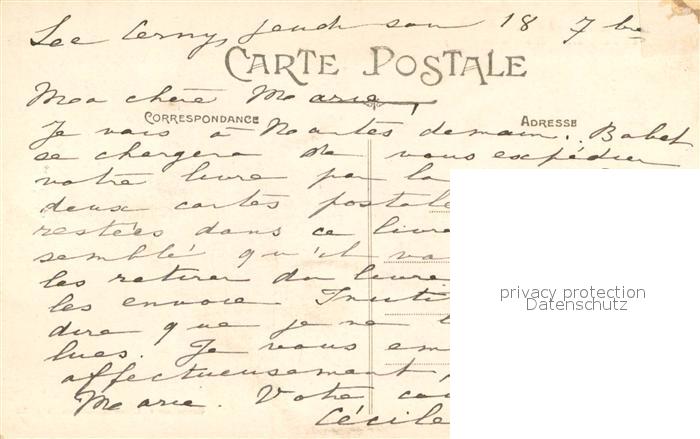 jeudi soir 18 7bre
CARTE POSTALE
Ma chère Marie,
CORRESPONDANCE ADRESSE
Je vais à Nantes demain. Babet
se chargera de vous expédier
votre livre par la
deux cartes postale
restées dans ce livre
semblé qu'il va
les retirer du livre
les envoie Inuti
dire que je ne
lues. Je vous em
affectueusement,
Marie. Votre cou
Cécile
privacy protection
Datenschutz